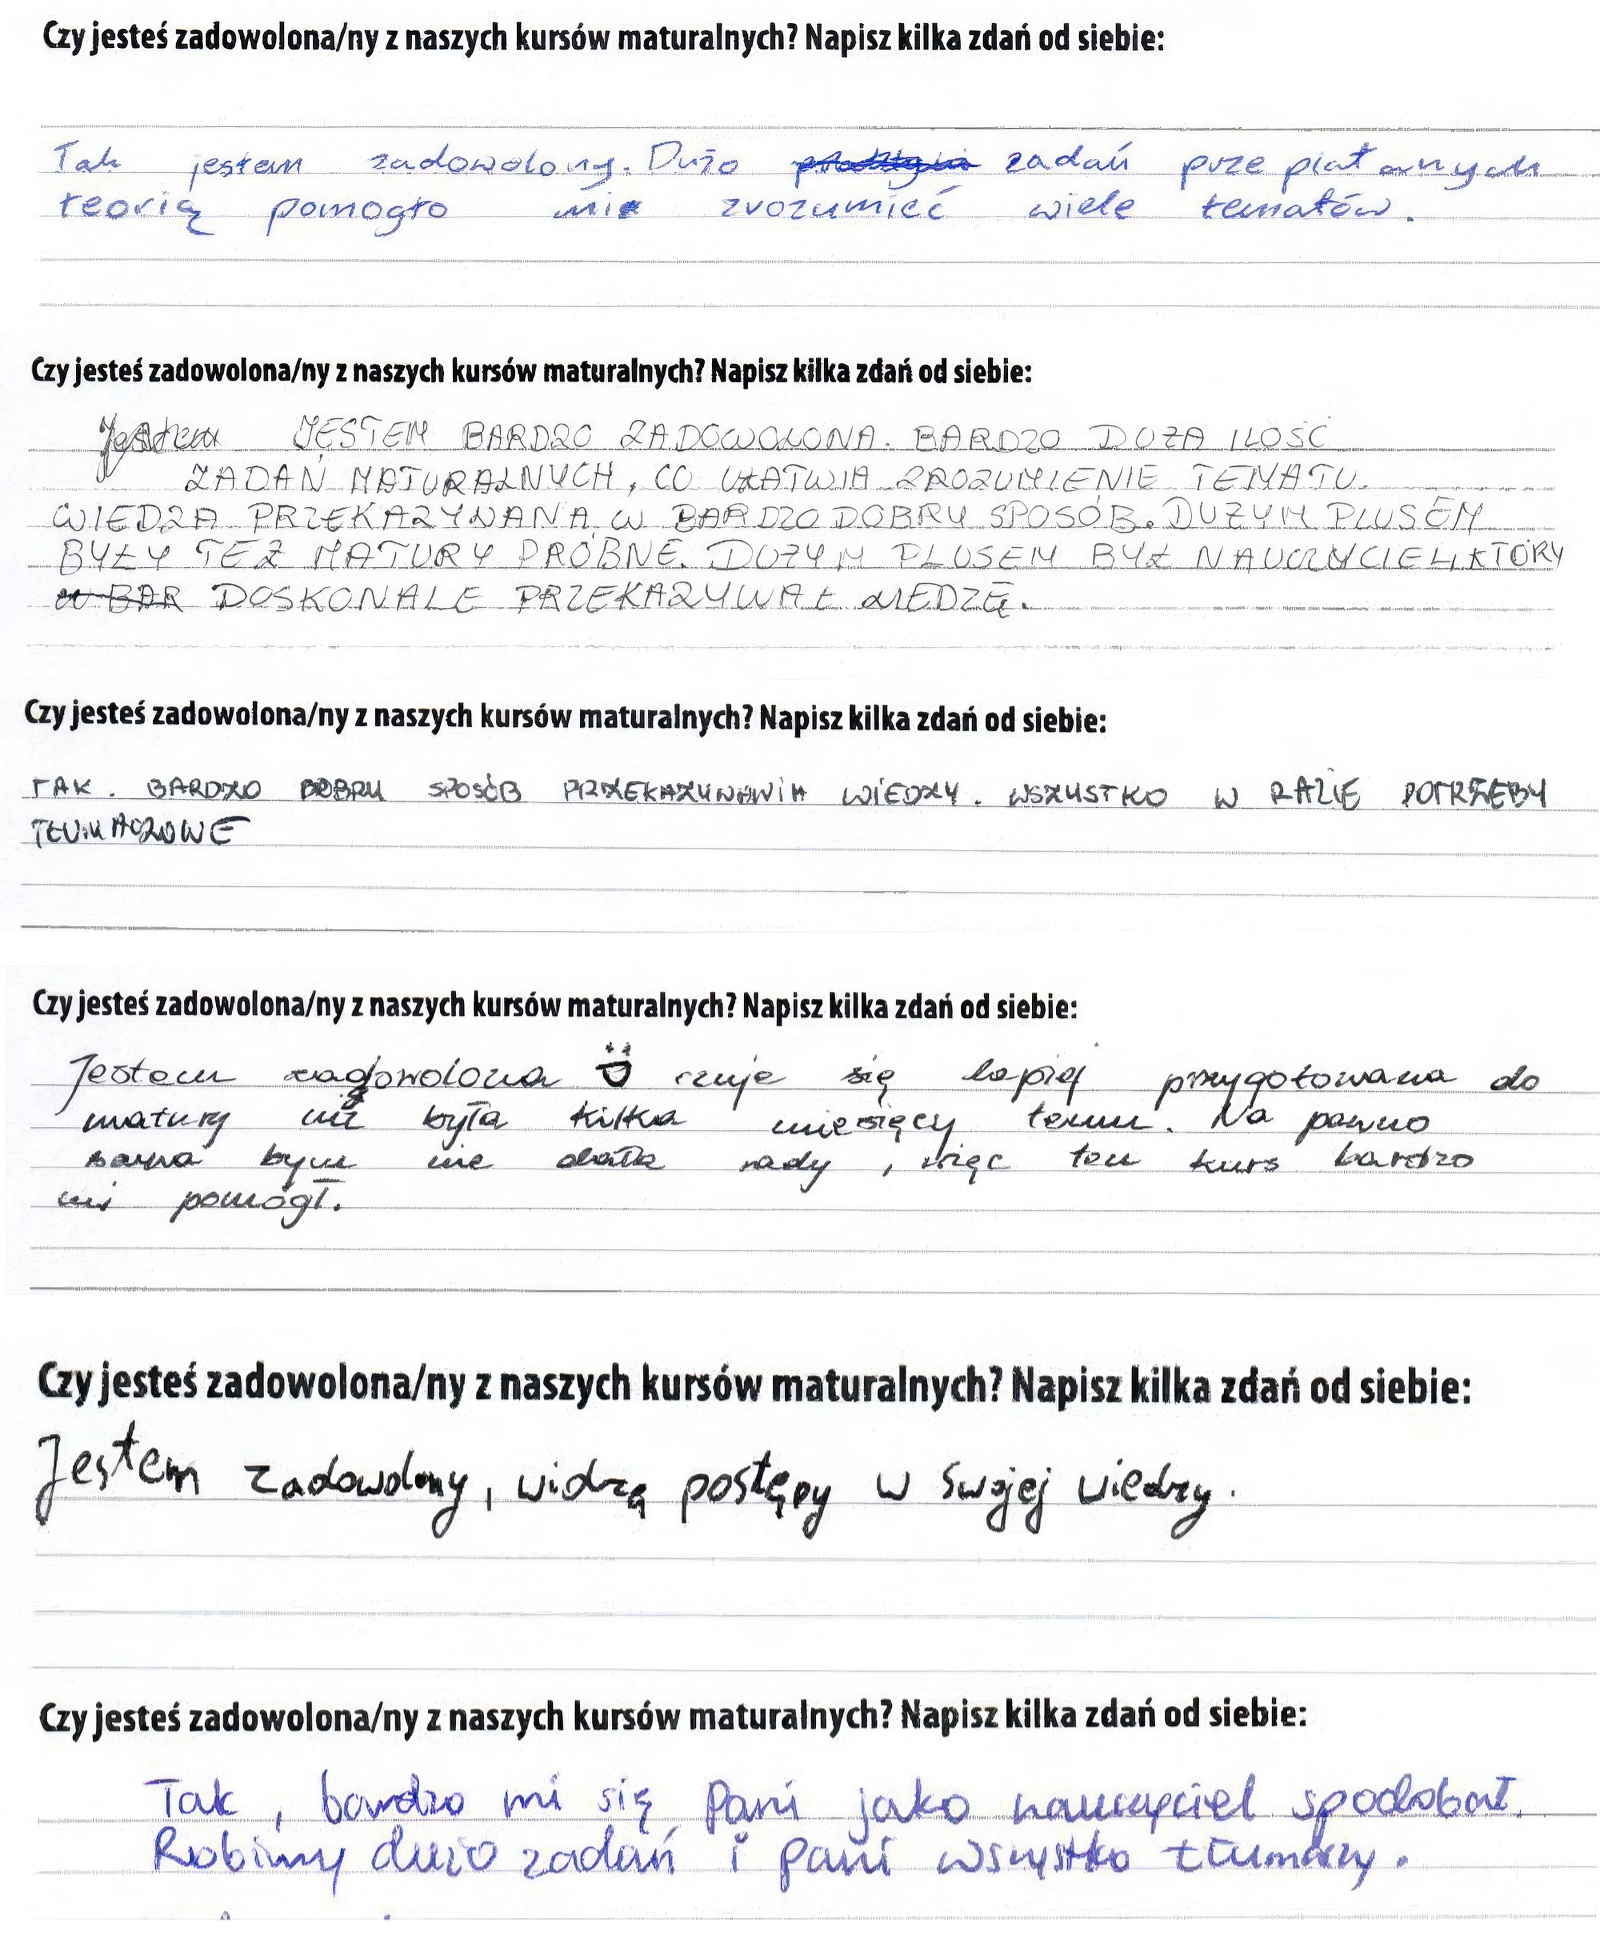 Czy jesteś zadowolona/ny z naszych kursów maturalnych? Napisz kilka zdań od siebie:
Tak jestem zadowolony. Dużo zadań przeplatanych
teorią pomogło mi zrozumieć wiele tematów.
Czy jesteś zadowolona/ny z naszych kursów maturalnych? Napisz kilka zdań od siebie:
Jestem JESTEM BARDZO ZADOWOLONA. BARDZO DUŻA ILOŚĆ
ZADAŃ MATURALNYCH, CO UŁATWIA ZROZUMIENIE TEMATU.
WIEDZA PRZEKAZYWANA W BARDZO DOBRY SPOSÓB. DUŻYM PLUSEM
BYŁY TEŻ MATURY PRÓBNE. DUŻYM PLUSEM BYŁ NAUCZYCIEL, KTÓRY
W BAR DOSKONALE PRZEKAZYWAŁ WIEDZĘ.
Czy jesteś zadowolona/ny z naszych kursów maturalnych? Napisz kilka zdań od siebie:
TAK. BARDZO DOBRY SPOSÓB PRZEKAZYWANIA WIEDZY. WSZYSTKO W RAZIE POTRZEBY
Czy jesteś zadowolona/ny z naszych kursów maturalnych? Napisz kilka zdań od siebie:
Jestem zadowolona czuje się lepiej przygotowana do
matury niż była kilka miesięcy temu. Na pewno
sama bym nie dała rady, więc ten kurs bardzo
mi pomógł.
Czy jesteś zadowolona/ny z naszych kursów maturalnych? Napisz kilka zdań od siebie:
Jestem zadowolony, widzą postępy w swojej wiedzy.
Czy jesteś zadowolona/ny z naszych kursów maturalnych? Napisz kilka zdań od siebie:
Tak, bardzo mi się Pani jako nauczyciel spodobał.
Robimy dużo zadań i pani wszystko tłumaczy.